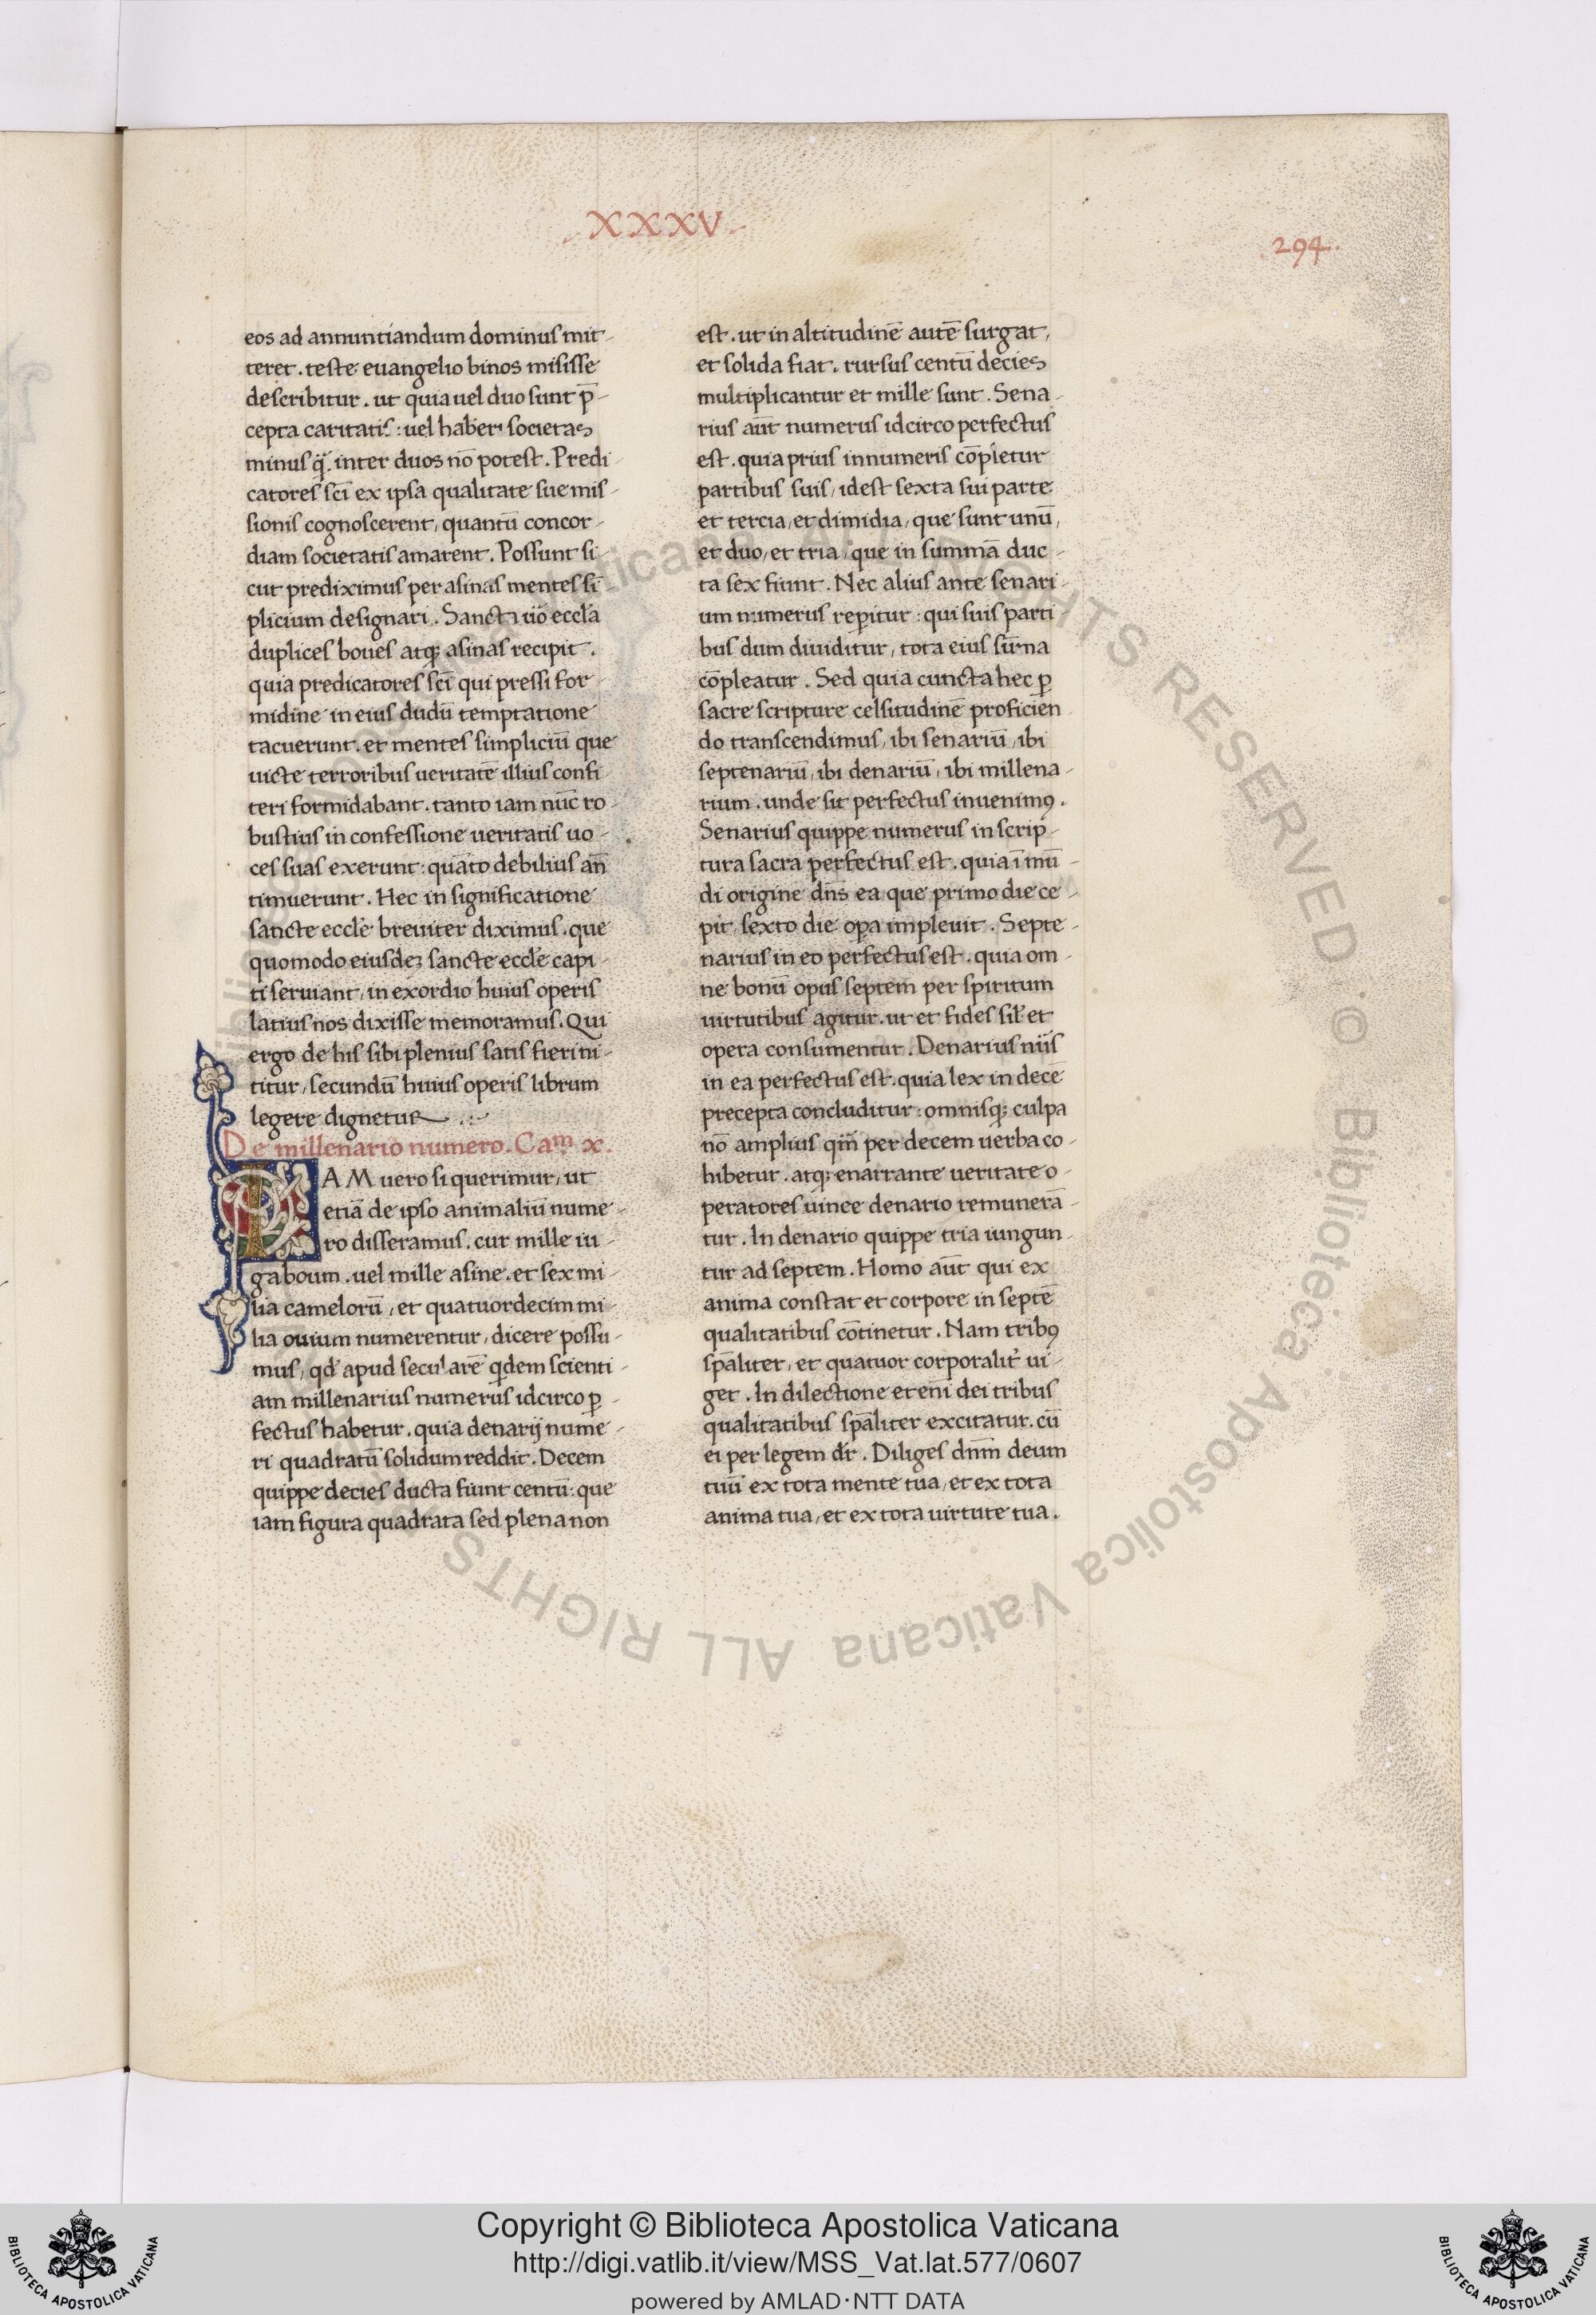 .XXXV.
294.
eos ad annuntiandum dominus mit-
teret. teste euangelio binos misisse
describitur. ut quia uel duo sunt p̄-
cepta caritatis: uel haberi societas
minus q̄. inter duos nō potest. Predi-
catores sc̄i ex ipsa qualitate sue mis-
sionis cognoscerent, quantū concor-
diam societatis amarent. Possunt si-
cut prediximus per asinas mentes sī-
plicium designari. Sancta uō eccła
duplices boues atq; asinas recipit.
quia predicatores sc̄i qui pressi for-
midine in eius dudū temptatione
tacuerunt. et mentes simpliciū que
uicte terroribus ueritatē illius confi-
teri formidabant. tanto iam nūc ro-
bustius in confessione ueritatis uo-
ces suas exerunt: quāto debilius an̄
timuerunt. Hec in significatione
sancte eccłe breuiter diximus. que
quomodo eiusdeʒ sancte eccłe capi-
ti seruiant, in exordio huius operis
latius nos dixisse memoramus. Qui
ergo de his sibi plenius satis fieri ni-
titur, secundū huius operis librum
legere dignetur .:-
De millenario numero. Cam. x.
IAM uero si querimur, ut
etiā de ipso animaliū nume-
ro disseramus. cur mille iu-
ga boum. uel mille asine. et sex mi-
lia camelorū, et quatuordecim mi-
lia ouium numerentur, dicere possu-
mus, qđ apud secularē qdem scienti-
am millenarius numerus idcirco ꝑ-
fectus habetur. quia denarij nume-
ri quadratū solidum reddit. Decem
quippe decies ducta fiunt centū: que
iam figura quadrata sed plena non
est. ut in altitudinē autē surgat,
et solida fiat. rursus centū decies
multiplicantur et mille sunt. Sena-
rius aūt numerus idcirco perfectus
est. quia prius in numeris cōpletur
partibus suis, idest sexta sui parte
et tercia, et dimidia, que sunt unū,
et duo, et tria, que in summā duc-
ta sex fiunt. Nec alius ante senari-
um numerus reꝑitur: qui suis parti
bus dum diuiditur, tota eius sum̄a
cōpleatur. Sed quia cuncta hec ꝑ
sacre scripture celsitudinē proficien
do transcendimus, ibi senariū, ibi
septenariū, ibi denariū, ibi millena-
rium. unde sit perfectus inuenimꝰ.
Senarius quippe numerus in scrip-
tura sacra perfectus est. quia ī mū-
di origine dn̄s ea que primo die ce-
pit, sexto die oꝑa impleuit. Septe-
narius in eo perfectus est. quia om-
ne bonū opus septem per spiritum
uirtutibus agitur. ut et fides sił et
opera consumentur. Denarius nūs
in ea perfectus est. quia lex in decē
precepta concluditur: omnisq; culpa
nō amplius qm̄ per decem uerba co-
hibetur. atq; enarrante ueritate o-
peratores uinee denario remunerā-
tur. In denario quippe tria iungun-
tur ad septem. Homo aūt qui ex
anima constat et corpore in septē
qualitatibus cōtinetur. Nam tribꝰ
sp̄aliter, et quatuor corporalit̓ ui-
get. In dilectione eteni dei tribus
qualitatibus sp̄aliter excitatur. cū
ei per legem dr̄. Diliges dnm̄ deum
tuū ex tota mente tua, et ex tota
anima tua, et ex tota uirtute tua.
Copyright © Biblioteca Apostolica Vaticana
http://digi.vatlib.it/view/MSS_Vat.lat.577/0607
powered by AMLAD·NTT DATA
BIBLIOTECA APOSTOLICA VATICANA
BIBLIOTECA APOSTOLICA VATICANA
Biblioteca Apostolica Vaticana ALL RIGHTS RESERVED ©